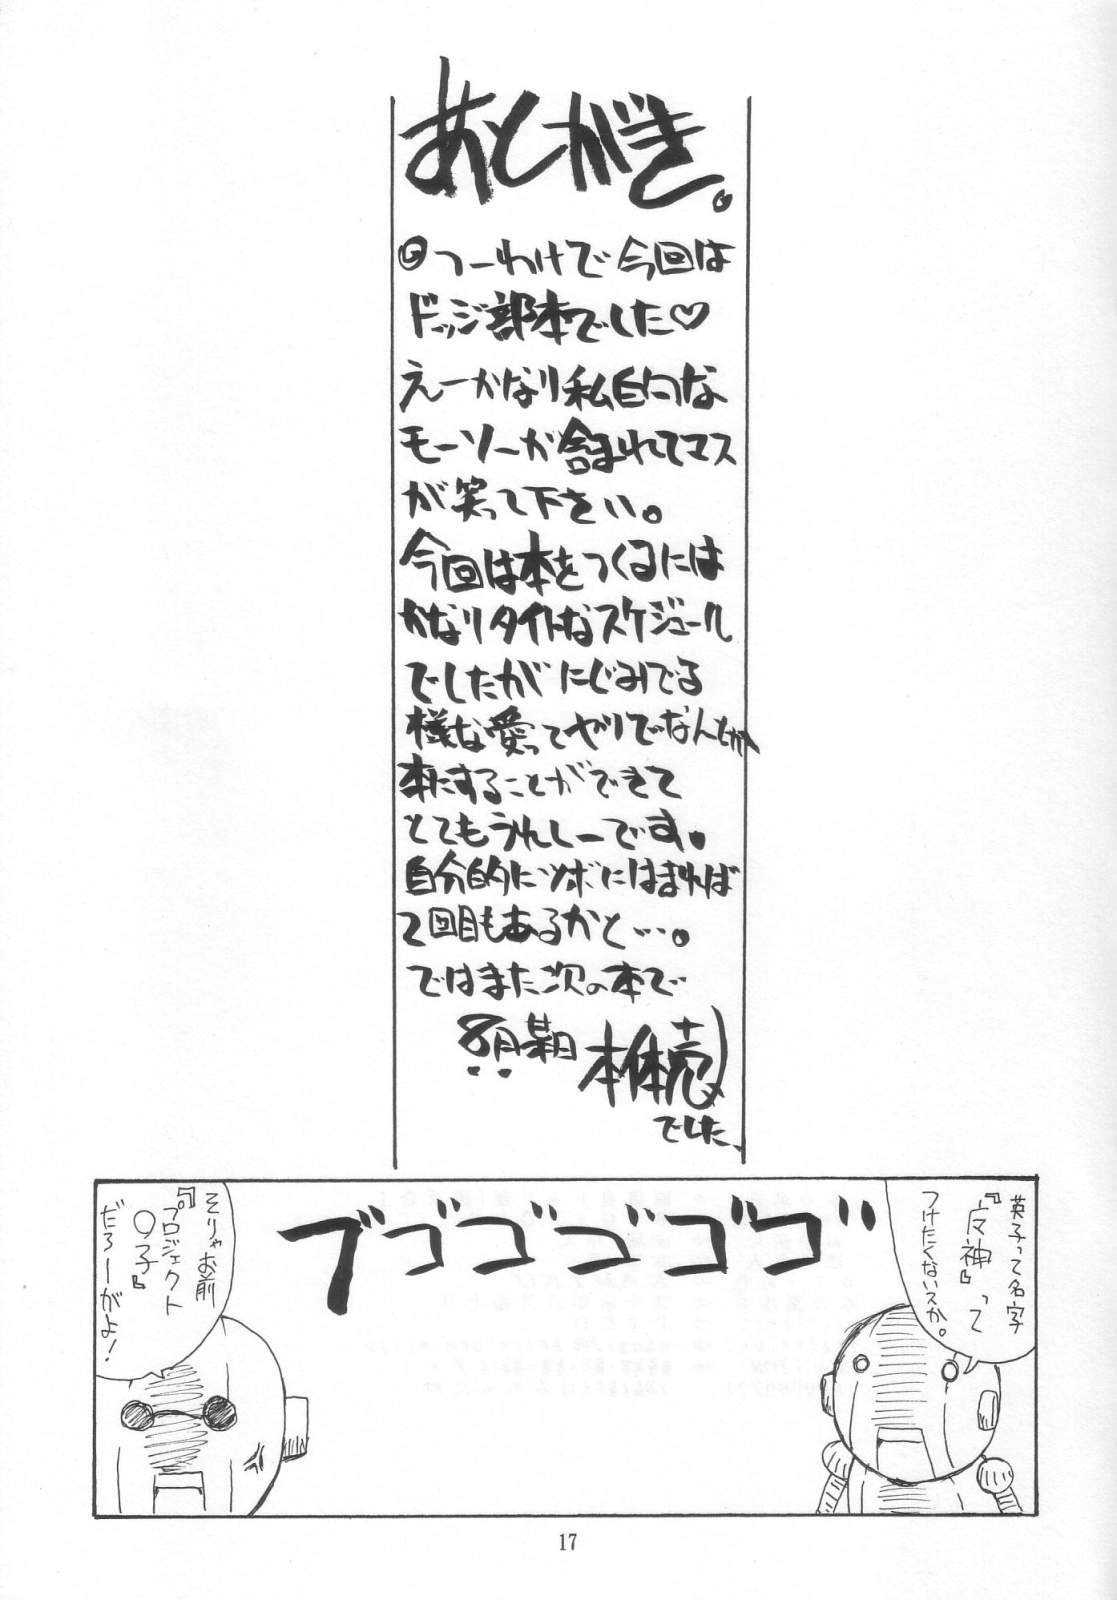 あとがき。
◎つーわけで今回は
ドッジ部本でした♡
えーかなり私的な
モーソーが含まれてマス
が笑って下さい。
今回は本をつくるには
かなりタイトなスケジュール
でしたがにじみでる
様な愛ってヤリでなんとか
本にすることができて
とてもうれしーです。
自分的にツボにはまれば
2回目もあるかと…。
ではまた次の本で
8月某日 本体売
でした、
英子って名字
『皮神』って
つけたくないスか。
ブゴゴゴゴゴゴ
そりゃお前
『プロジェクト
〇子』
だろーがよ!
17